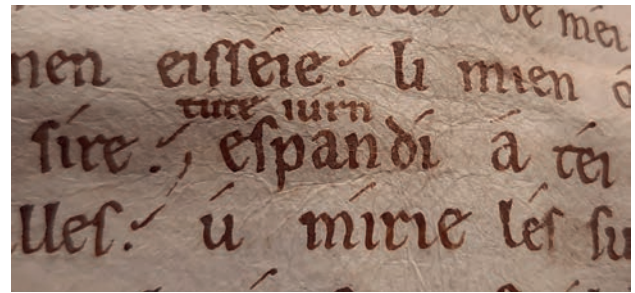 de méi
nen eiſſéie. li mien
tute iúrn
ſire. eſpandi á téi
lleſ. ú mirie léſ ſu